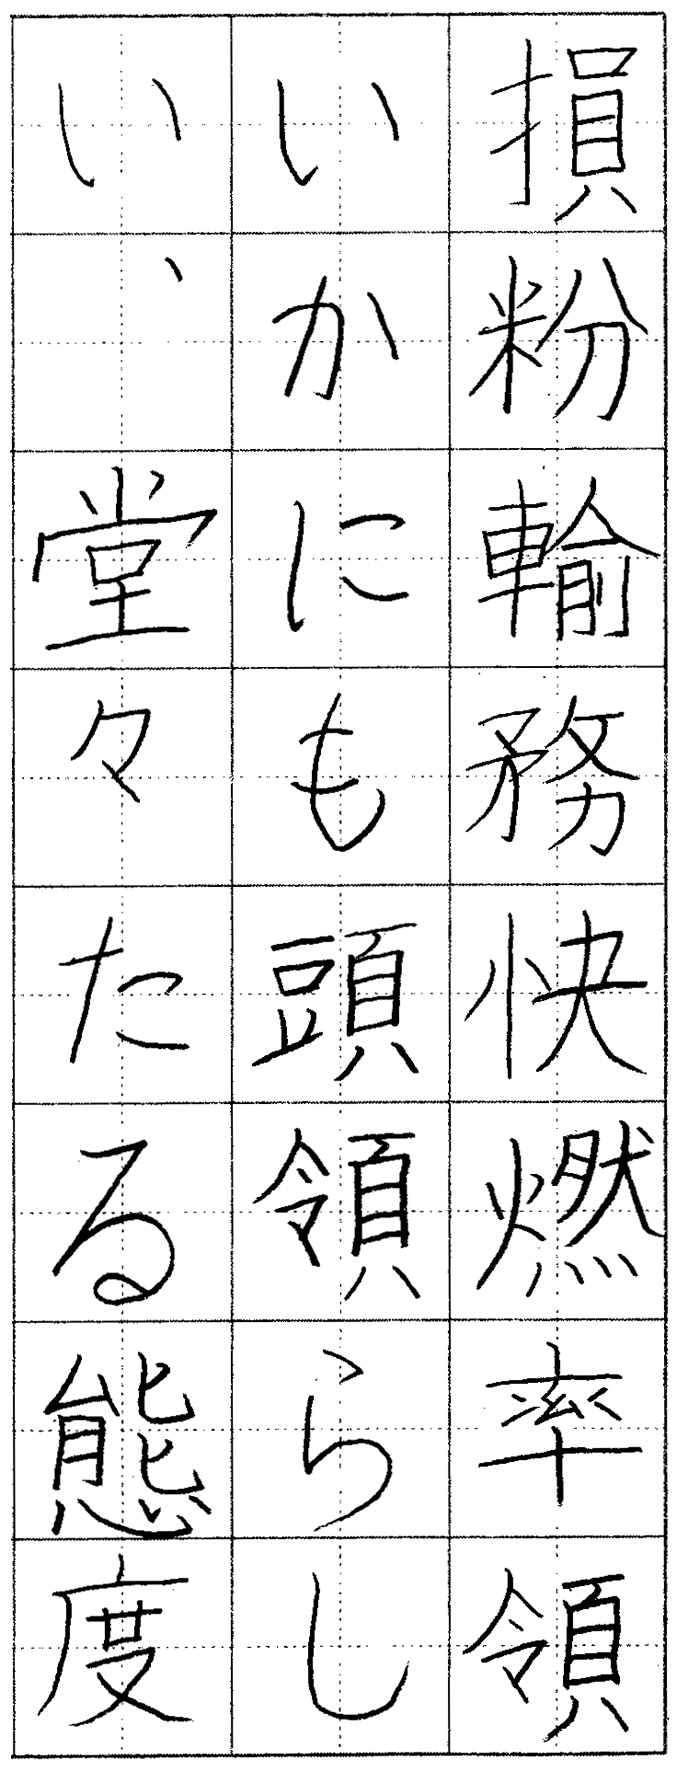 損粉輸務快燃率領
いかにも頭領らし
い、堂々たる態度